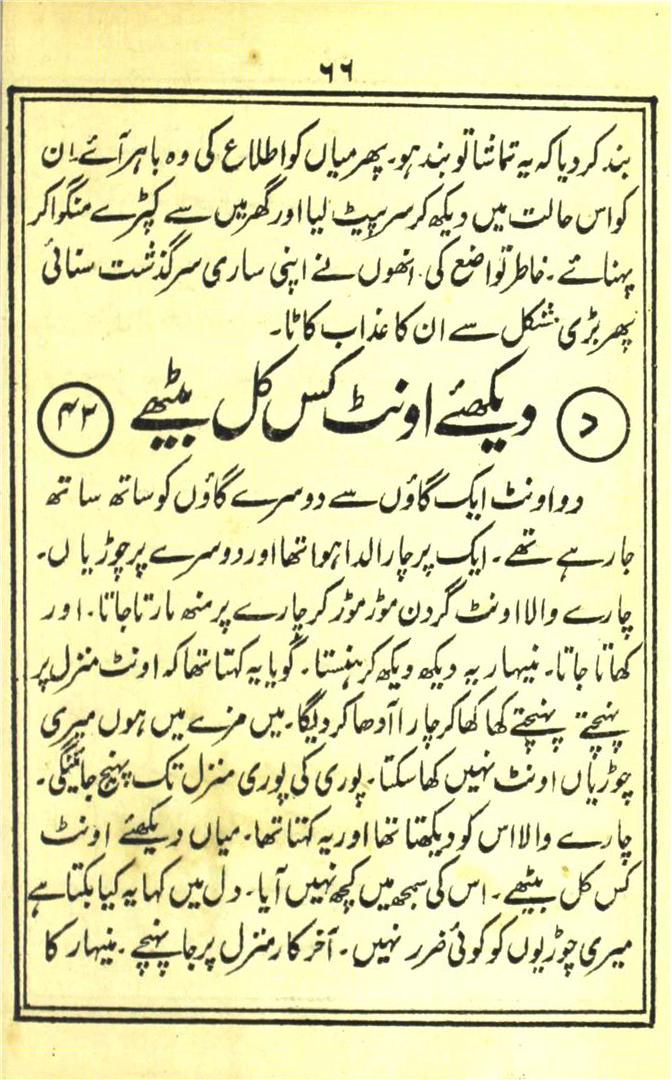 ۶۶
بند کر دیا کہ یہ تماشا تو بند ہو۔ پھر میاں کو اطلاع کی وہ باہر آئے۔ ان
کو اس حالت میں دیکھ کر سر پیٹ لیا اور گھر میں سے کپڑے منگوا کر
پہنائے۔ خاطر تواضع کی۔ انھوں نے اپنی ساری سرگذشت سنائی
پھر بڑی مشکل سے ان کا عذاب کاٹا۔
د دیکھئے اونٹ کس کل بیٹھے ۴۲
دو اونٹ ایک گاؤں سے دوسرے گاؤں کو ساتھ ساتھ
جا رہے تھے۔ ایک پر چارا لدا ہوا تھا اور دوسرے پر چوڑیاں۔
چارے والا اونٹ گردن موڑ موڑ کر چارے پر منھ مارتا جاتا۔ اور
کھاتا جاتا۔ منیہار یہ دیکھ دیکھ کر ہنستا۔ گویا یہ کہتا تھا کہ اونٹ منزل پر
پہنچتے پہنچتے کھا کھا کر چارا آدھا کر دیگا۔ میں مزے میں ہوں میری
چوڑیاں اونٹ نہیں کھا سکتا۔ پوری کی پوری منزل تک پہنچ جائینگی۔
چارے والا اس کو دیکھتا تھا اور یہ کہتا تھا۔ میاں دیکھئے اونٹ
کس کل بیٹھے۔ اس کی سمجھ میں کچھ نہیں آیا۔ دل میں کہا یہ کیا بکتا ہے
میری چوڑیوں کو کوئی ضرر نہیں۔ آخر کار منزل پر جا پہنچے۔ منیہار کا